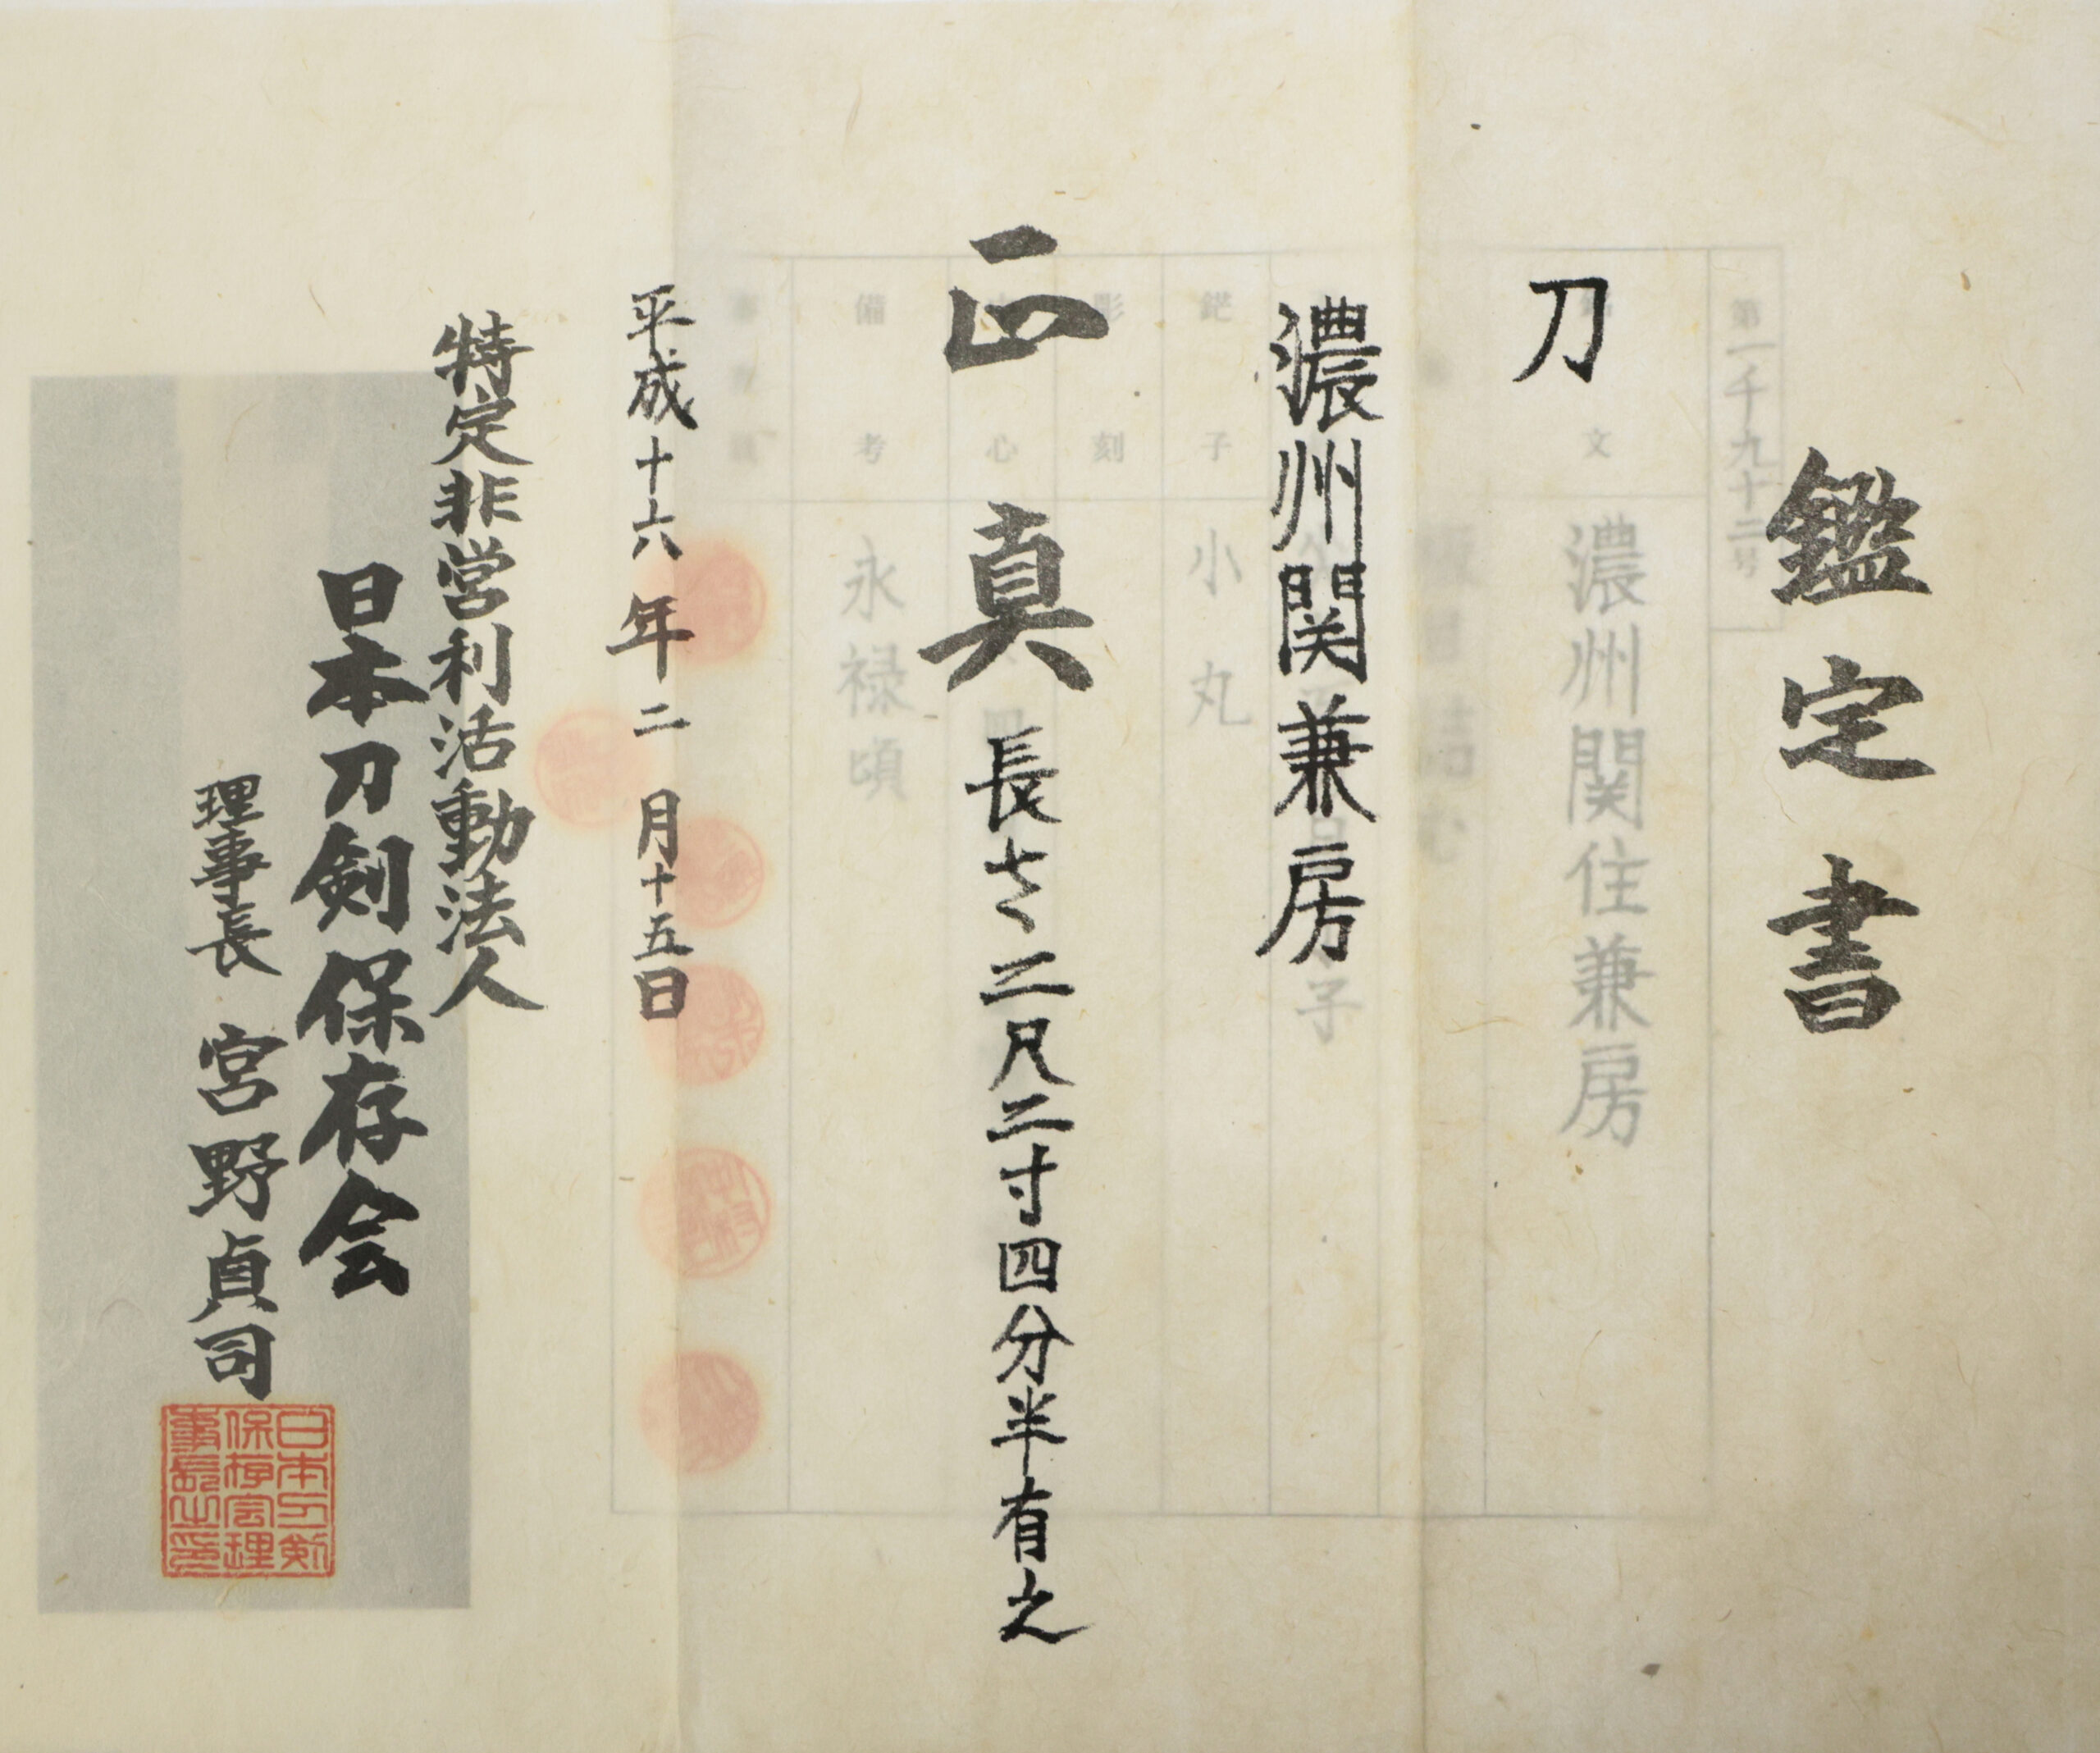 鑑定書
刀
濃州関兼房
正真 長さ二尺二寸四分半有之
平成十六年二月十五日
特定非営利活動法人
日本刀剣保存会
理事長 宮野貞司
日本刀剣
保存会理
事長之印
第一千九十二号
銘文
濃州関住兼房
鋩子
小丸
彫刻
中心
備考
永禄頃